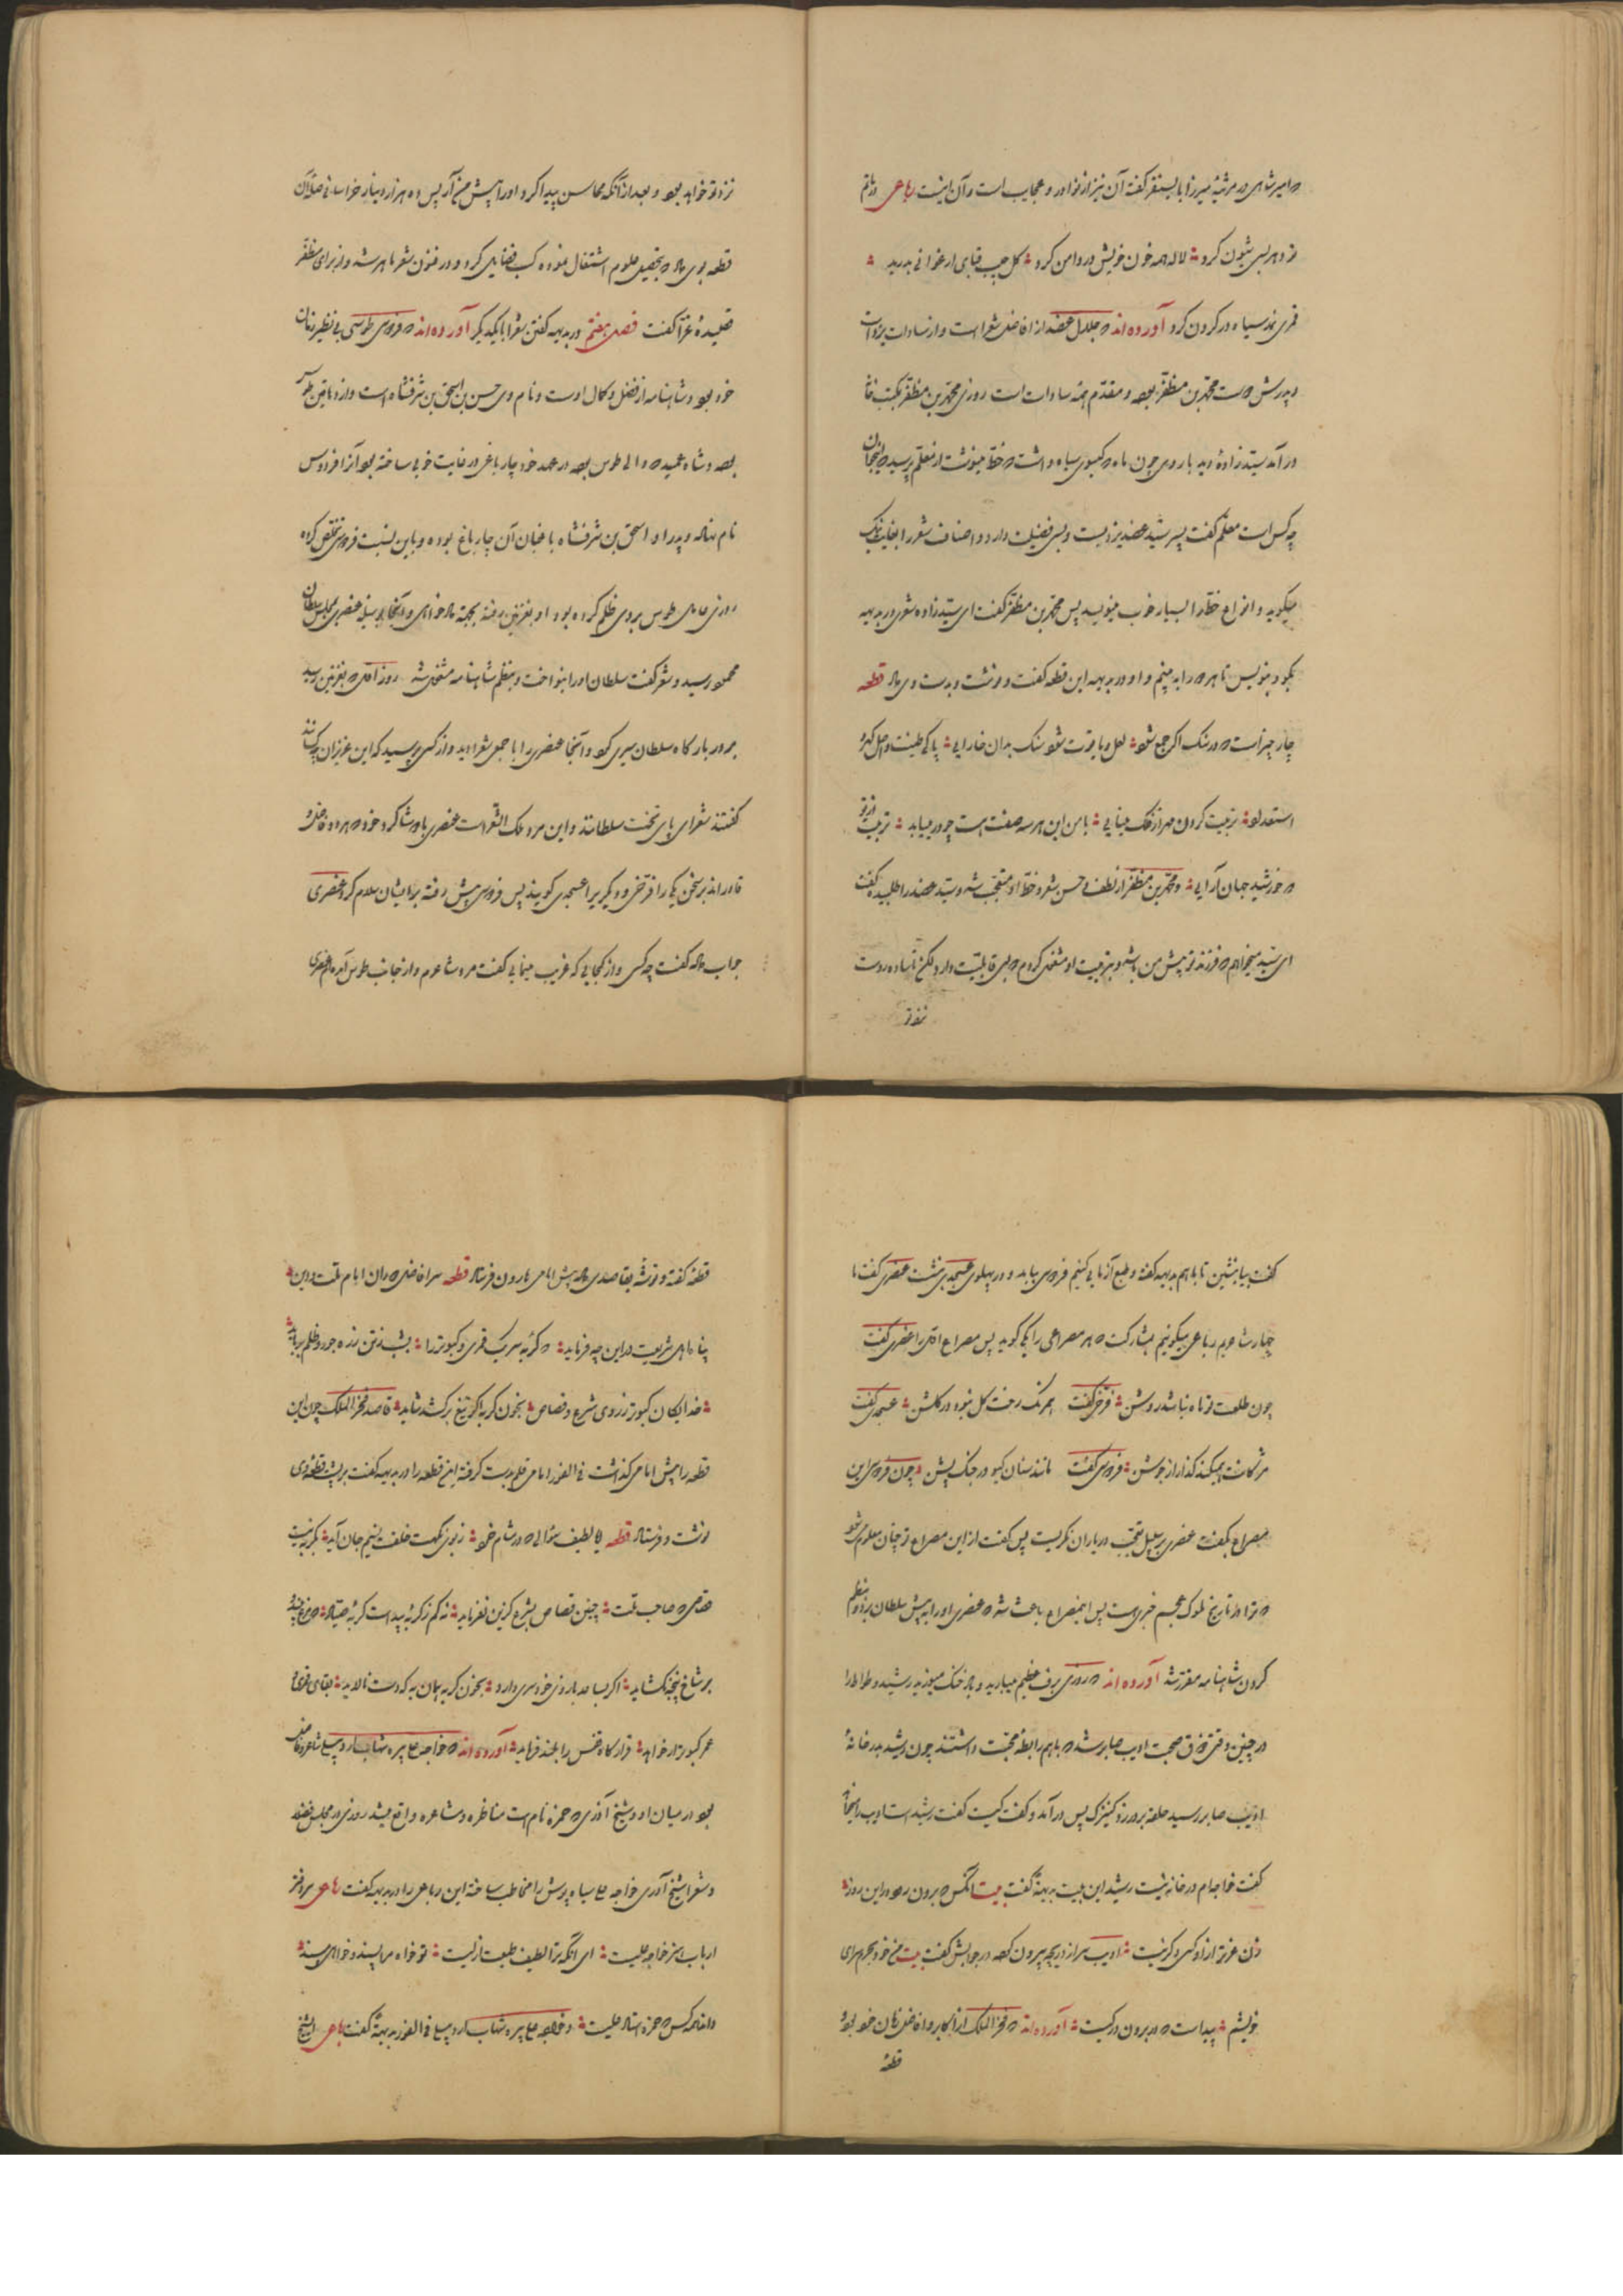 که امیر شاهی در مرثیهٔ میرزا بایسنقر گفته آن نیز از نوادر و عجایب است و آن اینست رباعی در ماتم
تو دهر بسی شیون کرد لاله همه خون خویش در دامن کرد گل جیب قبای ارغوانی بدرید
قمری نمد سیاه در گردن کرد آورده‌اند که جلال عضد از افاضل شعراست و از سادات یزد است
و پدرش محمد بن مظفر بوده و مقدم همه سادات است روزی محمد بن مظفر بمکتب خانه
در آمد سیدزادهٔ دید با روی چون ماه که گیسوی سیاه داشت که خط مینوشت از معلم پرسید که اینجوان
چه کس است معلم گفت پسر سید عضد یزدیست و بسی فضیلت دارد و اصناف شعر را بغایت نیک
میگوید و انواع خط را بسیار خوب مینویسد پس محمد بن مظفر گفت ای سیدزاده شعری در بدیهه
بگو و بنویس تا هر دو را به بینم و او در بدیهه این قطعه گفت و نوشت و بدست وی داد قطعه
چار چیز است که در سنگ اگر جمع شود لعل و یاقوت شود سنگ بدان خارایی پاکی طینت و اصل گهر و
استعداد تربیت کردن مهر از فلک مینایی با من این هر سه صفت هست چو در میباید تربیت از تو
که خورشید جهان آرایی و محمد بن مظفر از لطف حسن شعر و خط او متعجب شد و سید عضد را طلبیده گفت
ای سید میخواهم که فرزند تو پیش من باشد و بتربیت او مشغول گردم که بسی قابلیت دارد لیکن تا ساده روست
نزد تو
نزد تو خواهد بود و بعد از آنکه محاسن پیدا کرد او را پیش من آر پس ده هزار دینار خراسانی صلهٔ آن
قطعه بوی داد که بتحصیل علوم اشتغال نموده کسب فضایل کرد و در فنون شعر ماهر شد و از برای مظفر
قصیدهٔ غرا گفت فصل هفتم در بدیهه گفتن شعرا با یکدیگر آورده‌اند که فردوسی طوسی بی نظیر زمان
خود بود و شاهنامه از فضل و کمال اوست و نام وی حسن بن اسحق بن شرفشاه است و از دهاقین طوس
بوده و شاه عمید که والی طوس بوده در عهد خود چارباغی در غایت خوبی ساخته بود آنرا فردوس
نام نهاده و پدر او اسحق بن شرفشاه باغبان آن چارباغ بوده و باین نسبت فردوسی تخلص کرده
روزی عامل طوس بر وی ظلم کرده بود او بغزنین رفته بجهت دادخواهی و آنجا بوسیلهٔ عنصری بمجلس سلطان
محمود رسید و شعر گفت سلطان او را بنواخت و بنظم شاهنامه مشغول شد روز اول که بغزنین رسید
بر در بارگاه سلطان سیری کرد و آنجا عنصری را با جمعی شعرا دید و از کسی پرسید که این عزیزان چه کسانند
گفتند شعرای پای تخت سلطانند و این مرد ملک الشعراست عنصری با دو شاگرد خود که هر دو فاضل و
قادر اند بر سخن یکی را فرخی و دیگری را عسجدی گویند پس فردوسی پیش رفته بر ایشان سلام کرد عنصری
جواب داد گفت چه کسی و از کجایی که غریب مینمایی گفت مرد شاعرم و از جانب طوس آمده‌ام عنصری
گفت بیا بنشین تا با هم بدیهه گفته و طبع آزمایی کنیم فردوسی بیامد و در پهلوی عسجدی بنشست عنصری گفت ما
چهار شاعریم رباعی بگوییم بمشارکت که هر مصراعی را یکی گوید پس مصراع اول را عنصری گفت
چون طلعت تو ماه نباشد روشن فرخی گفت همرنگ رخت گل نبود در گلشن عسجدی گفت
مژگانت همیکند گذار از جوشن فردوسی گفت مانند سنان گیو در جنگ پشن چون فردوسی این
مصراع بگفت عنصری بر سبیل تعجب در یاران نگریست پس گفت از این مصراع تو چنان معلوم شود
که ترا از تاریخ ملوک عجم خبری هست پس اینمصراع باعث شد که عنصری او را به پیش سلطان برد و بنظم
کردن شاهنامه مقرر شد آورده‌اند که روزی برف عظیم میبارید و باد خنک میوزید رشید وطواط را
در چنین وقتی ذوق صحبت ادیب صابر شد که با هم رابطهٔ محبت داشتند چون رشید بدر خانهٔ
ادیب صابر رسید حلقه بر در زد کنیزک پس در آمد و گفت کیست گفت رشید است ادیب اینجا
گفت خواجه‌ام در خانه نیست رشید این بیت بدیهه گفت بیت آنکس که برون رود در این روز
زن عزیز از او کسی دگر نیست ادیب سر از دریچه بیرون کرده در جوابش گفت بیت من خود بحرم سرای
خویشم پیداست که در برون در کیست آورده‌اند که فخر الملک از اکابر و افاضل زمان خود بود
قطعهٔ
قطعهٔ گفته و نوشته بقاصدی داد پیش امامی هارون فرستاد قطعه سر افاضل دوران امام ملت و دین
پناه اهل شریعت در این چه فرماید که گربه سر یک قمری و کبوتر را بشب ز تن زده جور و ظلم برباید
خدایگان کبوتر ز روی شرع و قصاص بخون گربه اگر تیغ برکشد شاید قاصد فخر الملک چون این
قطعه را پیش امامی گذاشت فی الفور امامی قلم بدست گرفته این قطعه را در بدیهه گفت بر پشت قطعهٔ وی
نوشت و فرستاد قطعه ایا لطیف سؤالی که در مشام خرد ز بوی نکهت خلقت نسیم جان آید بگربه نیست
قصاص که صاحب ملت چنین قصاص بشرع گزین نفرماید نه کم ز گربهٔ بید است گربهٔ صیاد که مرغ بیند
بر شاخ پنجه نگشاید اگر بساعد بازوی خود سری دارد بخون گربه همان به که دست نالاید بقای قمری و
عمر کبوتر ار خواهد قرارگاه قفس را بلند فرماید آورده‌اند که خواجه علی پسر شهاب مرد شاعر فاضل
بود در میان او و شیخ آذری که حمزه نام است مناظره و مشاعره واقع میشد روزی در مجلس فضلا
و شعرا شیخ آذری خواجه علی سیاه پوش را مخاطب ساخته این رباعی را در بدیهه گفت رباعی سر دفتر
ارباب هنر خواجه علیست ای آنکه ترا لطیف طبعت ازلیست تو خواه مرا پسند و خواهی مپسند
دانند کس که حمزه استاد علیست و خواجه علی پسر شهاب فی الفور بدیهه گفت رباعی ای شیخ